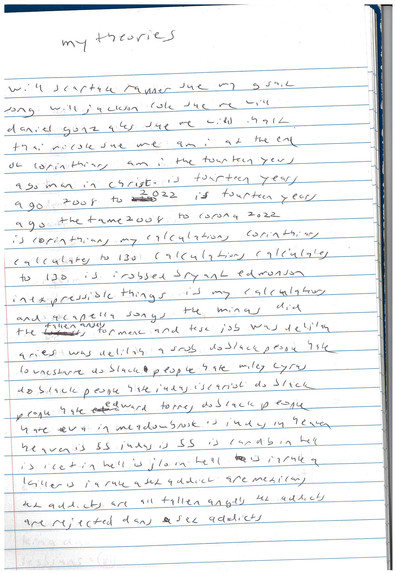 my theories
will scarface manner sue my music
song will jackson cole sue me will
daniel gonzales sue me will halt
thai nicole sue me am i at the end
of corinthians am i the fourteen years
ago man in christ is fourteen years
ago 2008 to 2022 is fourteen years
ago the tame 2008 to corona 2022
is corinthians my calculations corinthians
calculates to 130 calculations calculates
to 130 is i robbed bryant edmonson
inexpressible things is my calculations
and acapella songs the minus did
the fallen angels torment and test job was delila
aries was delilah a snob do black people hate
lovecture do black people hate miley cyrus
do black people hate judas iscariot do black
people hate edward torres do black people
hate eva in meadowbrook is judas in heaven
heaven is 55 judas is 55 is cardi b in hell
is ice t in hell is j lo in hell is in rule a
killer is in rule a sex addict are mexicans
sex addicts are all fallen angels sex addicts
are rejected dans sex addicts